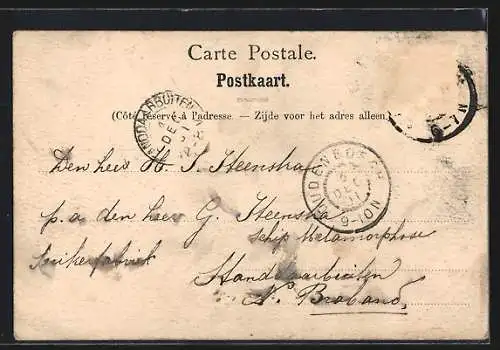 Carte Postale.
Postkaart.
(Côté réservé à l'adresse. — Zijde voor het adres alleen.)
STANDDAARBUITEN
DEC
OUDENBOSCH
DEC
9-10N
6-7N
Den heer H. S. Steenstra
p. a den heer G. Steenstra
schip Metamorphose
Suikerfabriek
Standdaarbuiten
N. Braband,